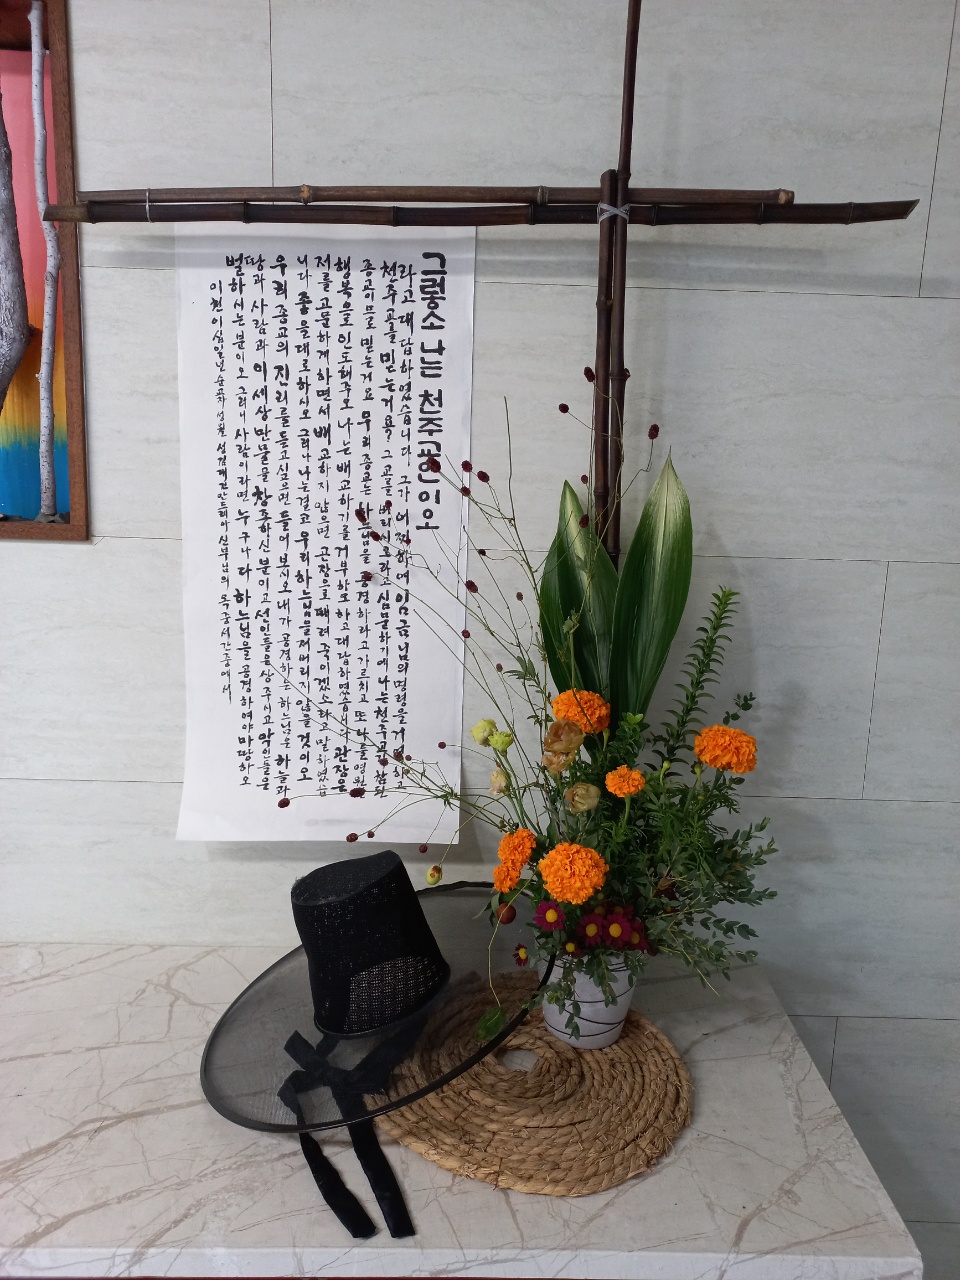 그렇소 나는 천주교인이오
라고 대답하였습니다 그가 어찌하여 임금님의 명령을 거역하고
천주교를 믿는거요? 그 교를 버리시오라고 심문하기에 나는 천주교가 참된
종교이므로 믿는거요 우리 종교는 하느님을 공경하라고 가르치고 또 나를 영원한
행복으로 인도해주오 나는 배교하기를 거부하오 하고 대답하였습니다 관장은
저를 고문하게 하면서 배교하지 않으면 곤장으로 때려 죽이겠소 하고 말하였습
니다 좋을대로 하시오 그러나 나는 결코 우리 하느님을 저버리지 않을 것이오
우리 종교의 진리를 듣고 싶으면 들어보시오 내가 공경하는 하느님은 하늘과
땅과 사람과 이 세상 만물을 창조하신 분이고 선인들을 상주시고 악인들을
벌하시는 분이오 그러니 사람이라면 누구나 다 하느님을 공경하여야 마땅하오
이천이십일년 순교자 성월 성 김대건 안드레아 신부님의 옥중서간중에서